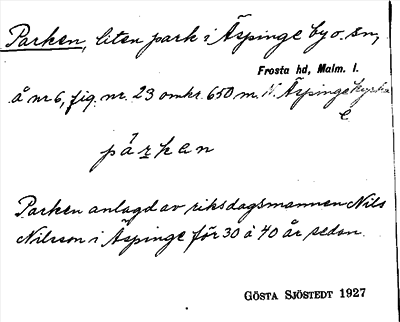 Parken, liten park i Äspinge by o. sn,
Frosta hd, Malm. l.
å nr 6, fig. nr. 23 omkr. 650 m. N. Äspinge kyrka
párkan
Parken anlagd av riksdagsmannen Nils
Nilsson i Äspinge för 30 à 40 år sedan.
GÖSTA SJÖSTEDT 1927